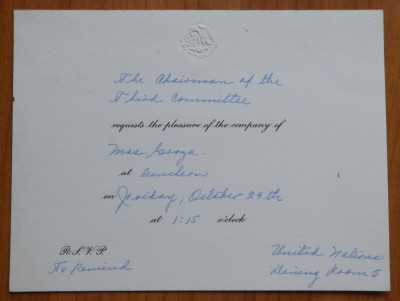 The Chairman of the
Third Committee
requests the pleasure of the company of
Mrs. Groza.
at luncheon
on Friday, October 29th
at 1:15 o'clock
R.S.V.P.
To Remind
United Nations
Dining Room 5